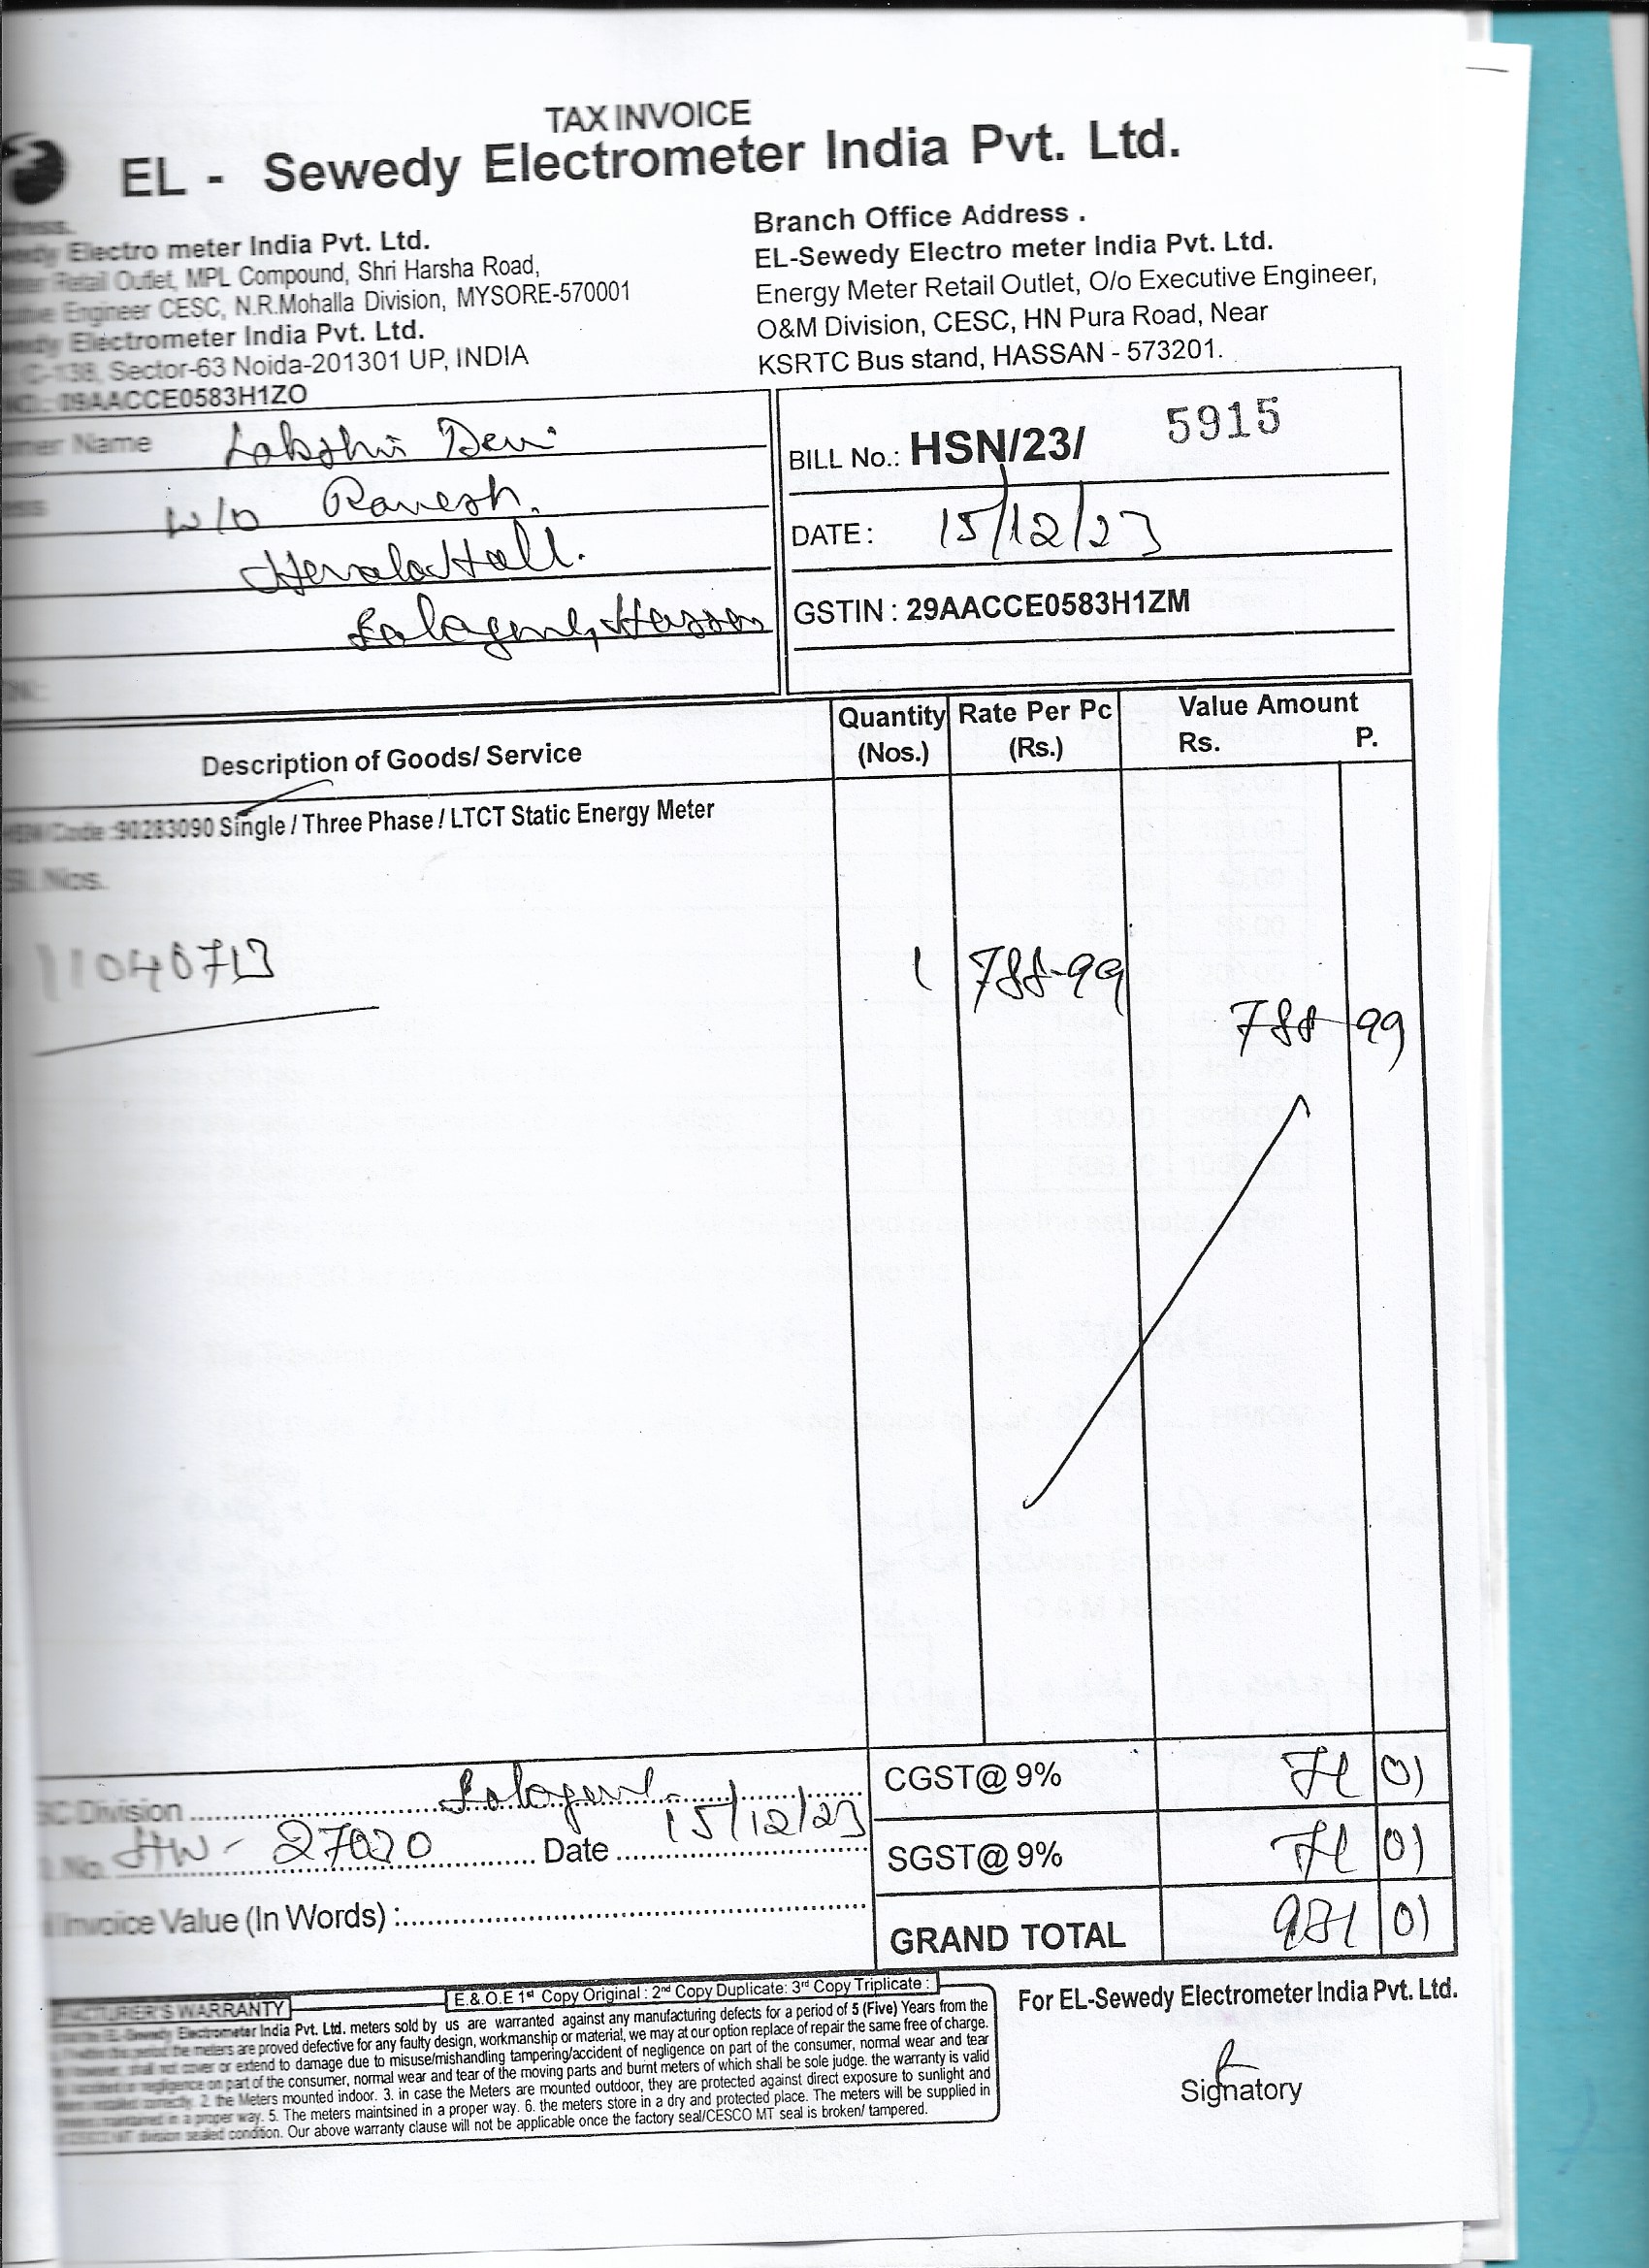 TAX INVOICE
EL - Sewedy Electrometer India Pvt. Ltd.
Electro meter India Pvt. Ltd.
Retail Outlet, MPL Compound, Shri Harsha Road,
Engineer CESC, N.R.Mohalla Division, MYSORE-570001
Electrometer India Pvt. Ltd.
C-138, Sector-63 Noida-201301 UP, INDIA
09AACCE0583H1ZO
Branch Office Address .
EL-Sewedy Electro meter India Pvt. Ltd.
Energy Meter Retail Outlet, O/o Executive Engineer,
O&M Division, CESC, HN Pura Road, Near
KSRTC Bus stand, HASSAN - 573201.
Name Devi
w/o
Hassan
BILL No.: HSN/23/ 5915
DATE : 15/12/23
GSTIN : 29AACCE0583H1ZM
Description of Goods/ Service
Quantity (Nos.)
Rate Per Pc (Rs.)
Value Amount
Rs. P.
Code :90283090 Single / Three Phase / LTCT Static Energy Meter
Sl.Nos.
1 788-99
788 99
CGST@ 9% 71 01
SGST@ 9% 71 01
GRAND TOTAL 931 01
Division
No. 27020 Date 15/12/23
Invoice Value (In Words) :
E.&.O.E 1st Copy Original : 2nd Copy Duplicate: 3rd Copy Triplicate :
WARRANTY
Electrometer India Pvt. Ltd. meters sold by us are warranted against any manufacturing defects for a period of 5 (Five) Years from the
the meters are proved defective for any faulty design, workmanship or material, we may at our option replace of repair the same free of charge.
shall not cover or extend to damage due to misuse/mishandling tampering/accident of negligence on part of the consumer, normal wear and tear
negligence on part of the consumer, normal wear and tear of the moving parts and burnt meters of which shall be sole judge. the warranty is valid
correctly. 2. the Meters mounted indoor. 3. in case the Meters are mounted outdoor, they are protected against direct exposure to sunlight and
in a proper way. 5. The meters maintsined in a proper way. 6. the meters store in a dry and protected place. The meters will be supplied in
division sealed condition. Our above warranty clause will not be applicable once the factory seal/CESCO MT seal is broken/ tampered.
For EL-Sewedy Electrometer India Pvt. Ltd.
Signatory